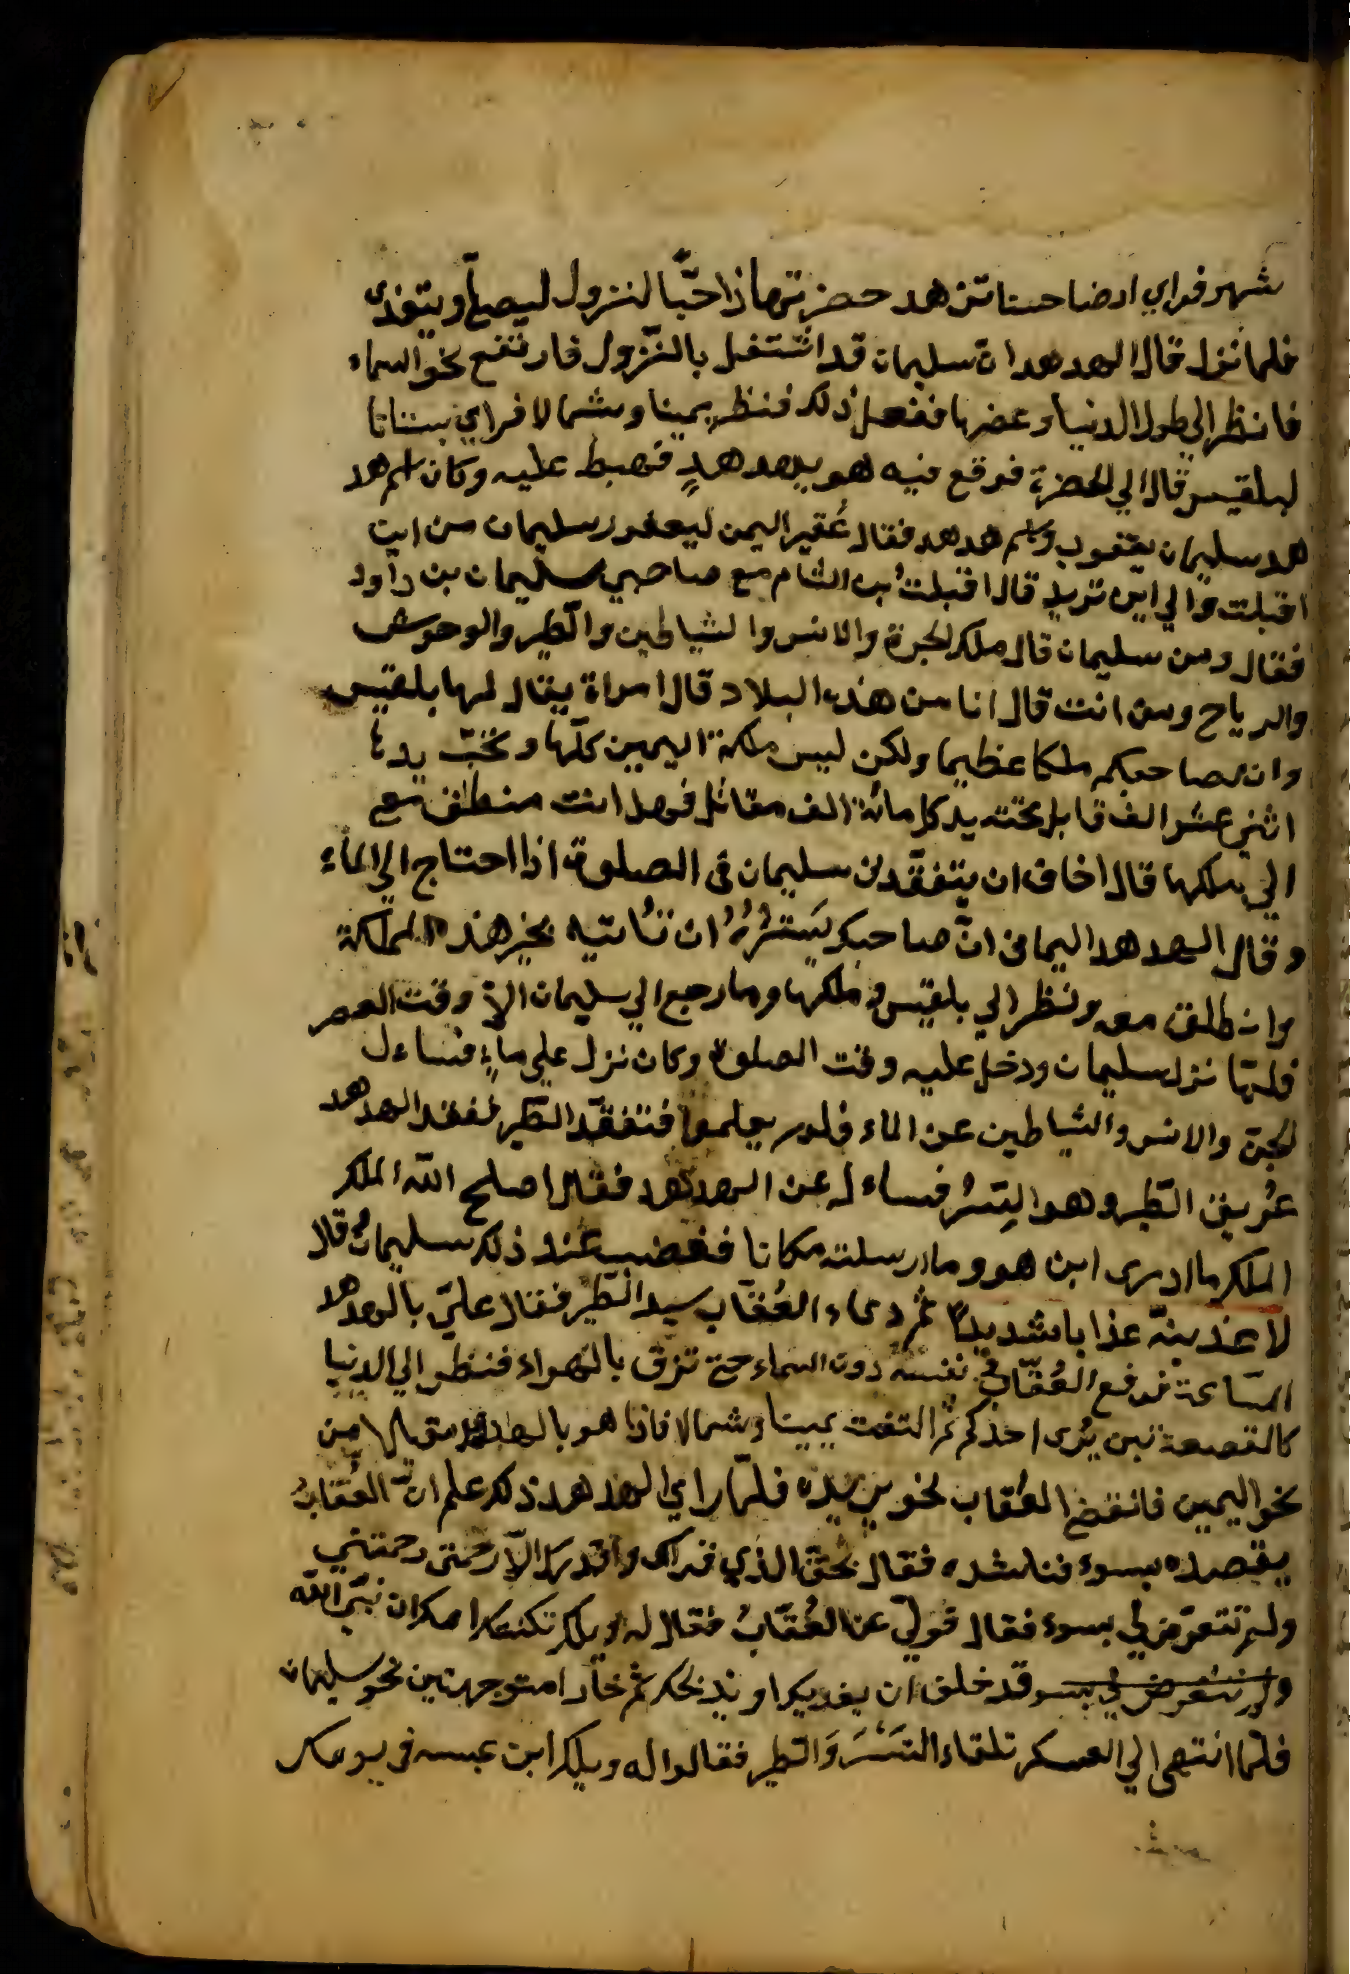 شهر فراي ارضا حسنا تزهد حضرتها فاحبّ النزول ليصلّ ويتغذى
فلما نزل قال الهدهد انّ سليمان قد اشتغل بالنّزول فارتفع نحو السماء
فانظر الي طول الدنيا وعضرها ففعل ذلك فنظر يمينا وشمالا فراي بستانا
لبلقيس قال الي الحضرة فوقع فيه هو بهدهدٍ فهبط عليه وكان اسم هد
هد سليمان يعفور واسم هدهد فقال عُقير اليمن ليعفور سليمان من اين
اقبلت والي اين تريد قال اقبلتُ من الشام مع صاحبي سليمان بن داود
فقال ومن سليمان قال ملك الجن والانس والشياطين والطّير والوحوش
والرياح ومن انت قال انا من هذه البلاد قال امراة يقال لها بلقيس
وان لصاحبكم ملكا عظيما ولكن ليس ملكة اليمين كلّها وتحت يدها
اثني عشر الف قايل تحته يد كل مائة الف مقاتل فهل انت منطلق معي
الي ملكها قال اخاف ان يتفقّدن سليمان في الصلوة اذا احتاج الي الماء
وقال الهدهد اليماني انّ صاحبك يَسُرُّهُ ان تأتيه بخبر هذه المملكة
وانطلق معه ونظر الي بلقيس وملكها وما رجع الي سليمان الاّ وقت العصر
فلمّا نزل سليمان ودخل عليه وقت الصلوة وكان نزل علي ماءٍ فساءل
الجنّ والانس والشياطين عن الماء فلم يعلموا فتفقّد الطّير ففقد الهدهد
عُريف الطّير وهو النِسرُ فساءله عن الهدهد فقال اصلح الله الملك
الملك ما ادرى اين هو وما ارسلته مكانا فغضب عند ذلك سليمانُ وقال
لاعذبنّه عذابا شديداً ثم دعاء العُقّاب سيد الطّير فقال عليّ بالهدهد
السّاعة فرفع العُقّاب نفسه دون السماء حتي تزق بالهواء فنظر الي الدنيا
كالقصعة بين يُدى احدكم ثم التفت يمينا وشمالا فاذا هو بالهدهد مقبلا من
نحو اليمين فانقض العُقاب نحو يريده فلمّا راي الهدهد ذلك علم انّ العُقابُ
يقصده بسوء فناشده فقال بحق الذي قواك واقدرك الاّ رحمتي رحمتني
ولم تتعرّض لي بسوء فقال فولّي عن العُقّابُ فقال له ويلك ثكلتك امك ان نبيّ الله
ولم تتعرّض لي بسو قد خلف ان يعذبك او يذبحك ثم خارا متوجهين نحو سليمان
فلمّا انتهى الي العسكر تلقاء النسَرَ والطير فقالوا له ويلك اين عبسه في يومك